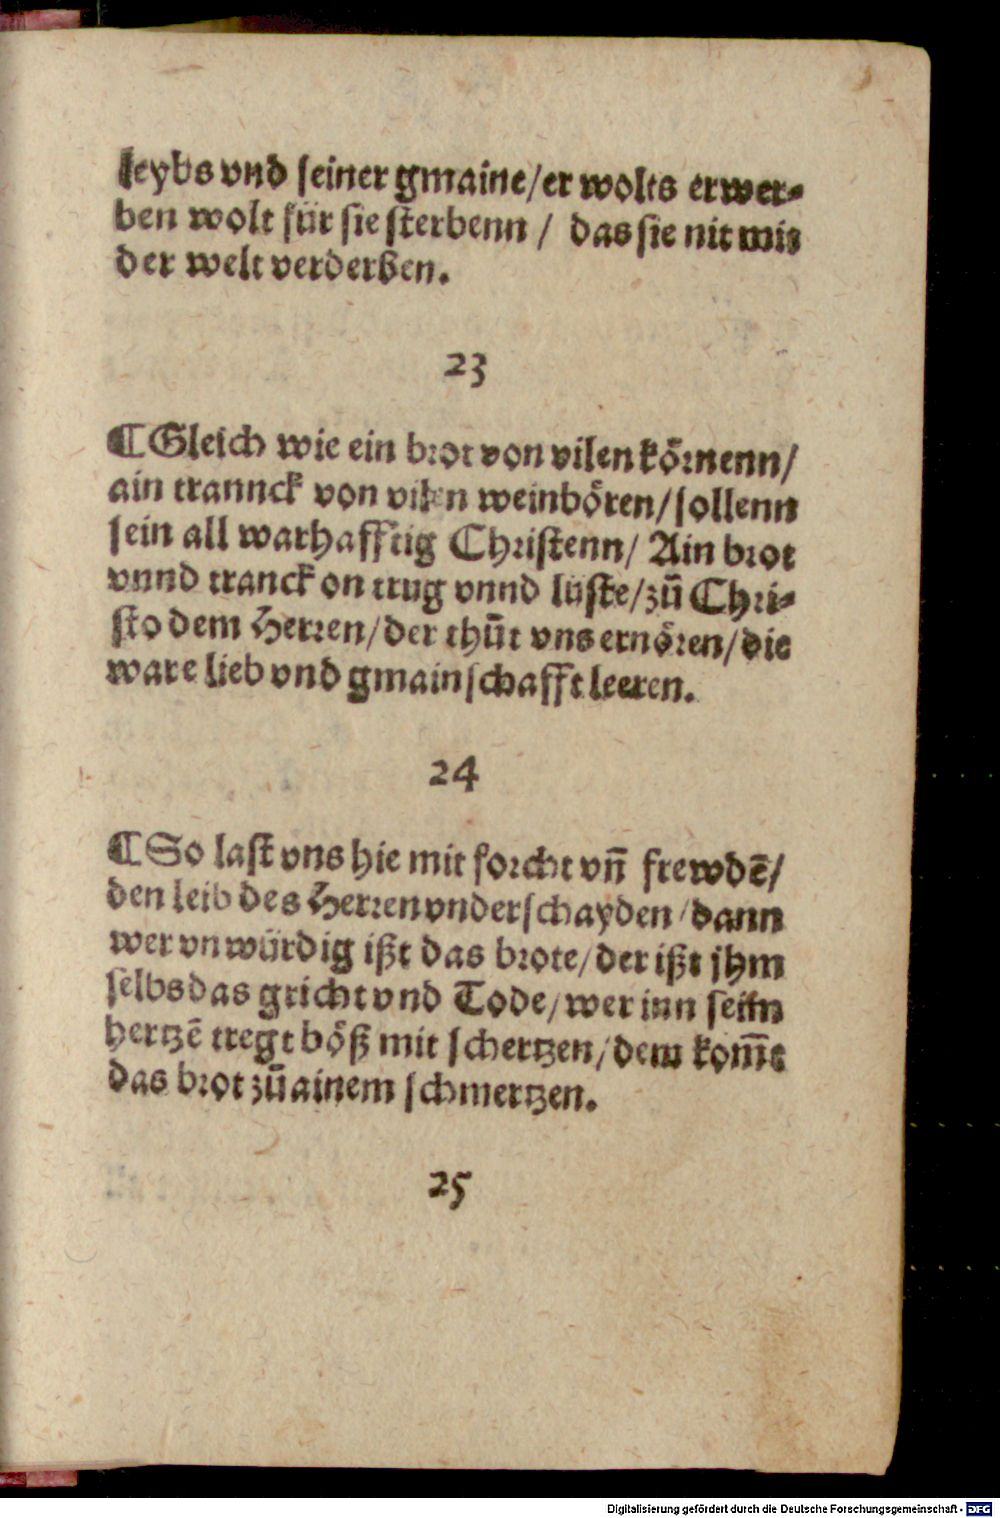 leybs vnd seiner gmaine/er wolts erwer⸗
ben wolt für sie sterbenn / das sie nit mit
der welt verderben.
23
¶ Gleich wie ein brot von vilen kőrnenn/
ain trannck von vilen weinbőren/sollenn
sein all warhafftig Christenn/ Ain brot
vnnd tranck on trug vnnd lüste/zů Chri⸗
sto dem Herren/der thůt vns ernőren/die
ware lieb vnd gmainschafft leeren.
24
¶ So last vns hie mit forcht vñ frewdē/
den leib des Herren vnderschayden/dann
wer vnwürdig ißt das brote/der ißt jhm
selbs das gricht vnd Tode/wer inn seim
hertzē tregt bőß mit schertzen/dem kom̄t
das brot zů ainem schmertzen.
25
Digitalisierung gefördert durch die Deutsche Forschungsgemeinschaft - DFG